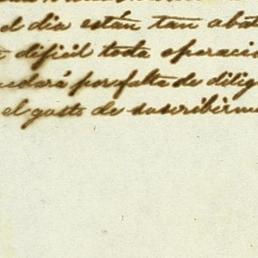 el dia están tan abat
dificil toda operacio
edará por falta de dilig
el gusto de suscribirm